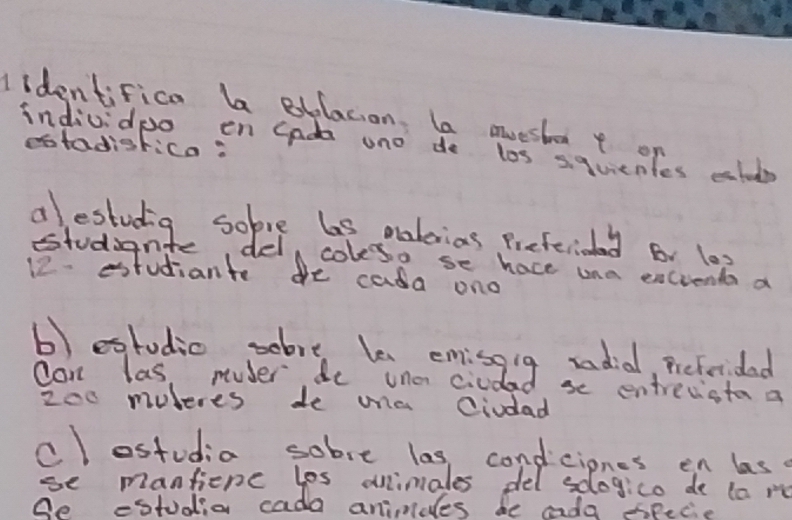 1 identifica la Poblacion, la muestra y on
individuo en cada uno de los siguientes estudio
estadistica:
a) estudia sobre las materias Preferidad Por los
estudiante del colegio se hace una encuenda a
12 - estudiante de cada uno
b) estudio sobre la emisora radial, Preferidad
Con las muJer de una ciudad se entrevista a
200 muJeres de una Ciudad
c) estudia sobre las condiciones en las
se mantiene los animales del sologico de la
se estudia cada animales de cada especie